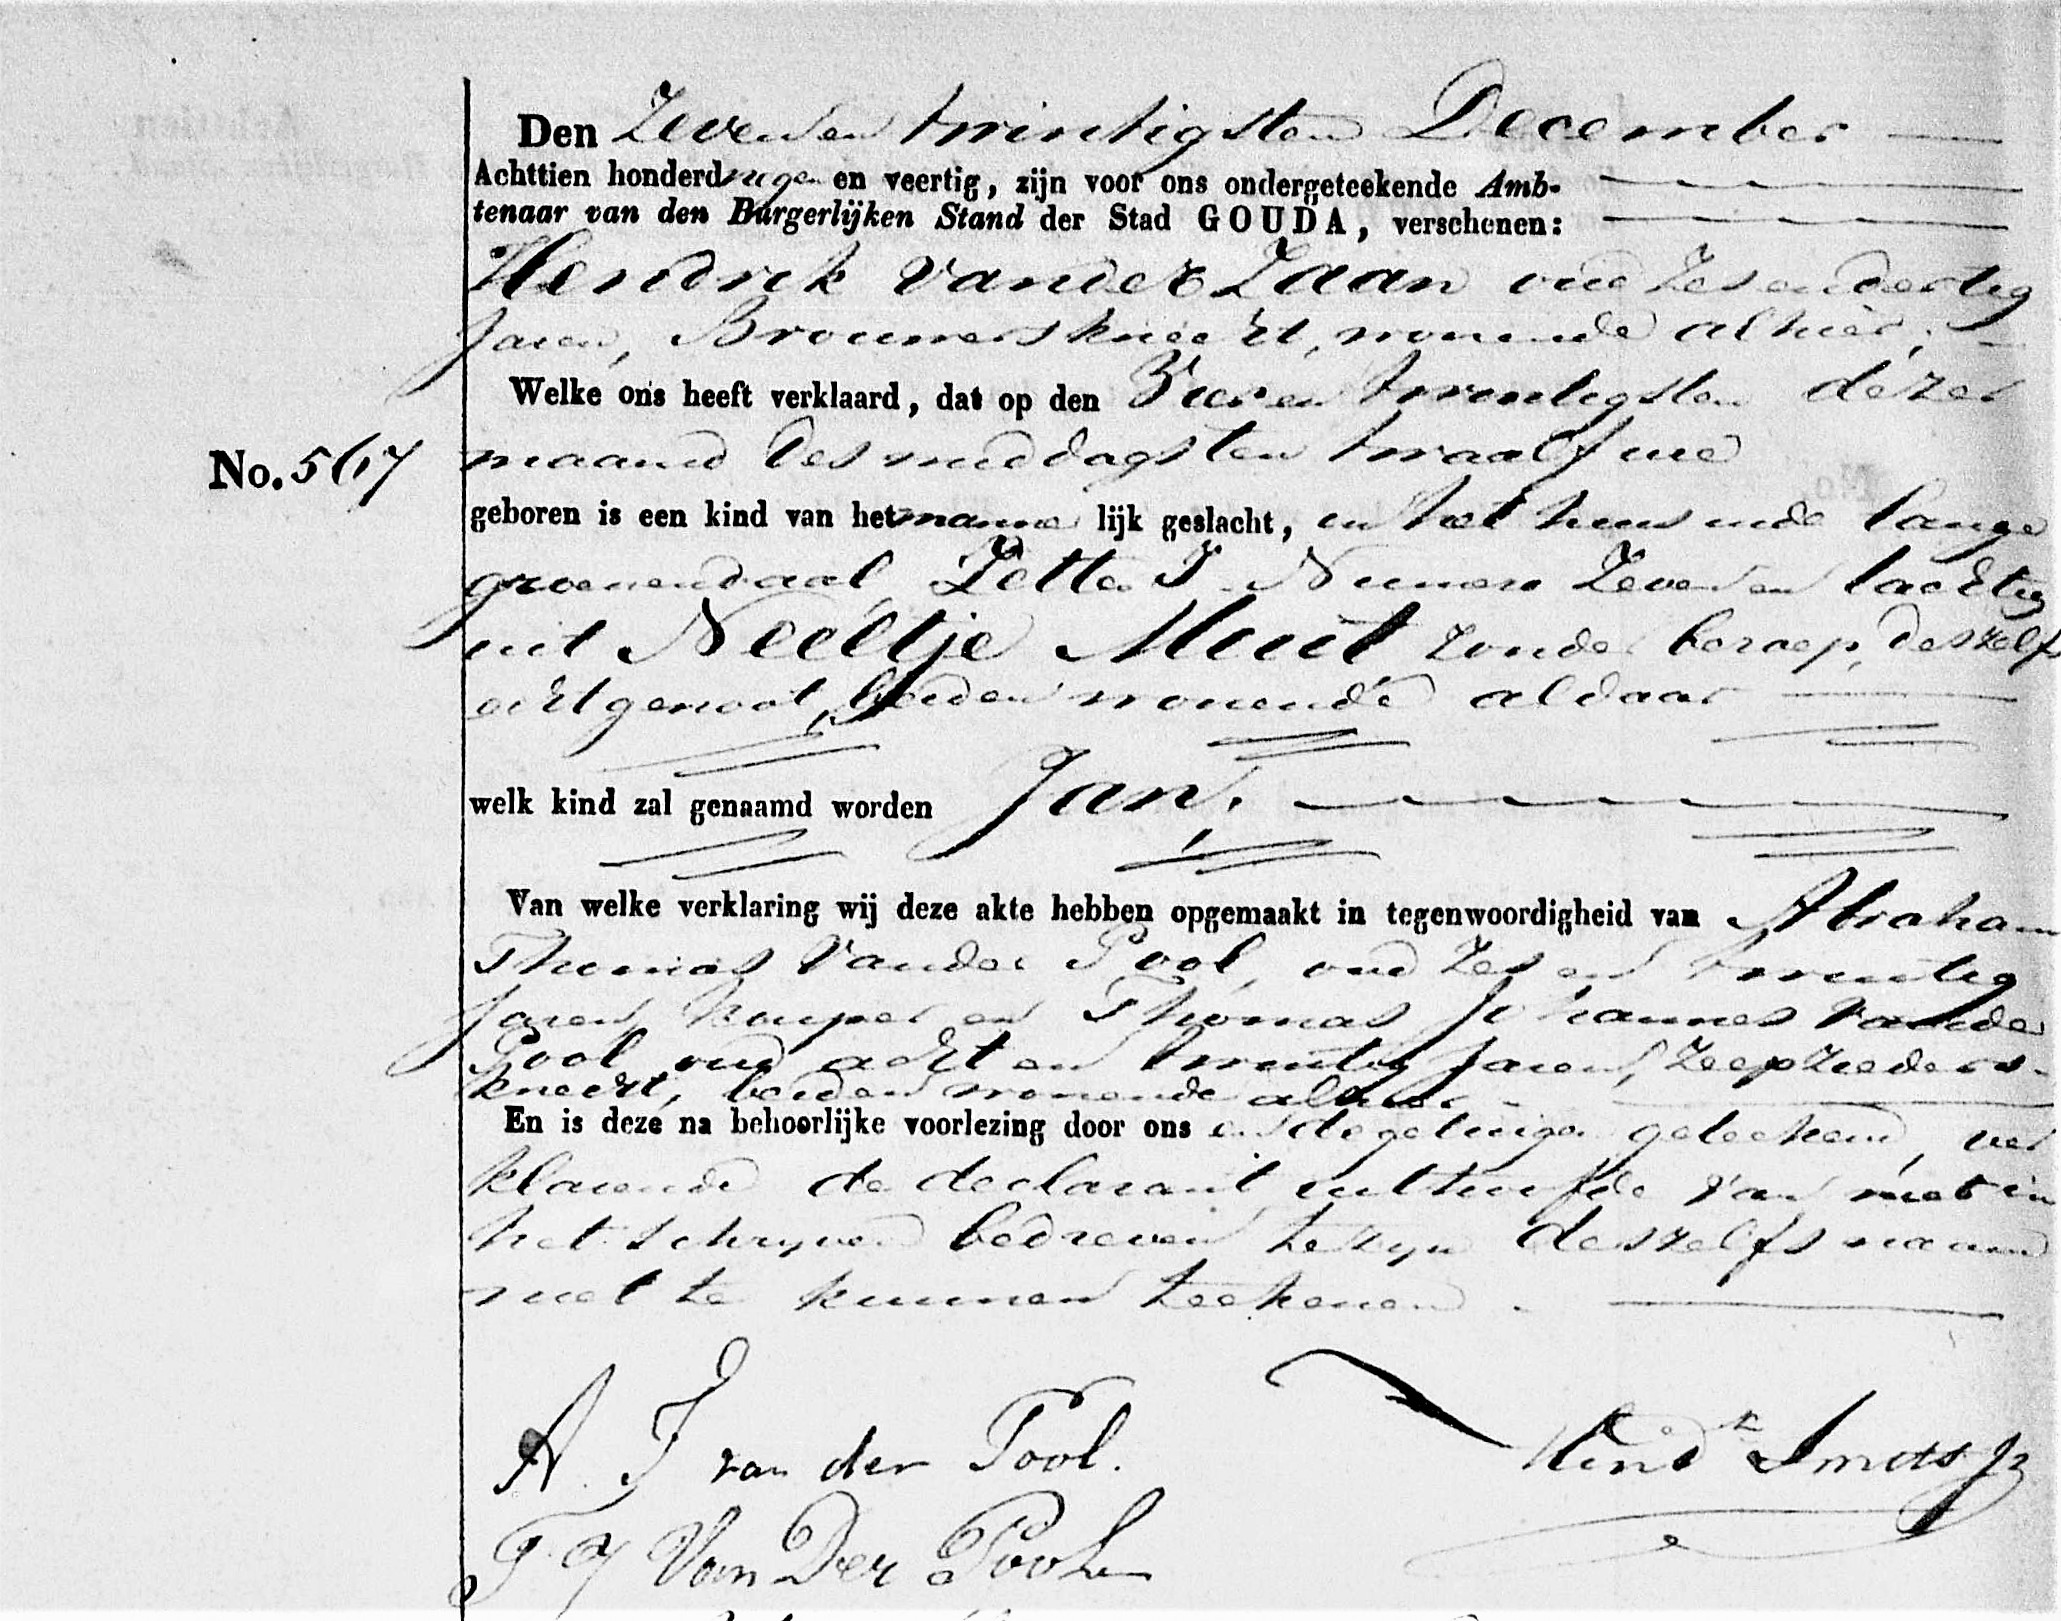 Den Zeven en twintigsten December
Achttien honderd negen en veertig, zijn voor ons ondergeteekende Amb-
tenaar van den Burgerlijken Stand der Stad GOUDA, verschenen:
Hendrik van der Zaan oud Zes en dertig
Jaren, Brouwersknecht, wonende alhier,
Welke ons heeft verklaard, dat op den Vier en twintigsten dezer
No. 567
maand des middags ten twaalf ure
geboren is een kind van het manne lijk geslacht, in het huis in de lange
groenendaal Letter I Numero Zeven en tachtig
uit Neeltje Muit zonder beroep, deszelfs
echtgenoot, beiden wonende aldaar
welk kind zal genaamd worden Jan.
Van welke verklaring wij deze akte hebben opgemaakt in tegenwoordigheid van Abraham
Thomas van der Pool, oud Zes en twintig
Jaren, Kuiper en Thomas Johannes van der
Pool oud acht en twintig Jaren, Zeepzieders-
knecht, beiden wonende alhier
En is deze na behoorlijke voorlezing door ons en de getuigen geteekend, ver
klarende de declarant uit hoofde van niet in
het schryven bedreven te zyn deszelfs naam
niet te kunnen teekenen.
A. T van der Pool. Hendk Smits Jz
T J Van Der Pool